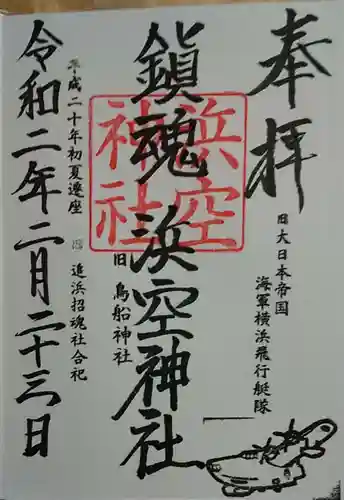 奉拝
旧大日本帝国
海軍横浜飛行艇隊
鎮魂 浜空神社
浜空
神社
旧 鳥船神社
平成二十年初夏遷座
旧 追浜招魂社合祀
令和二年二月二十三日